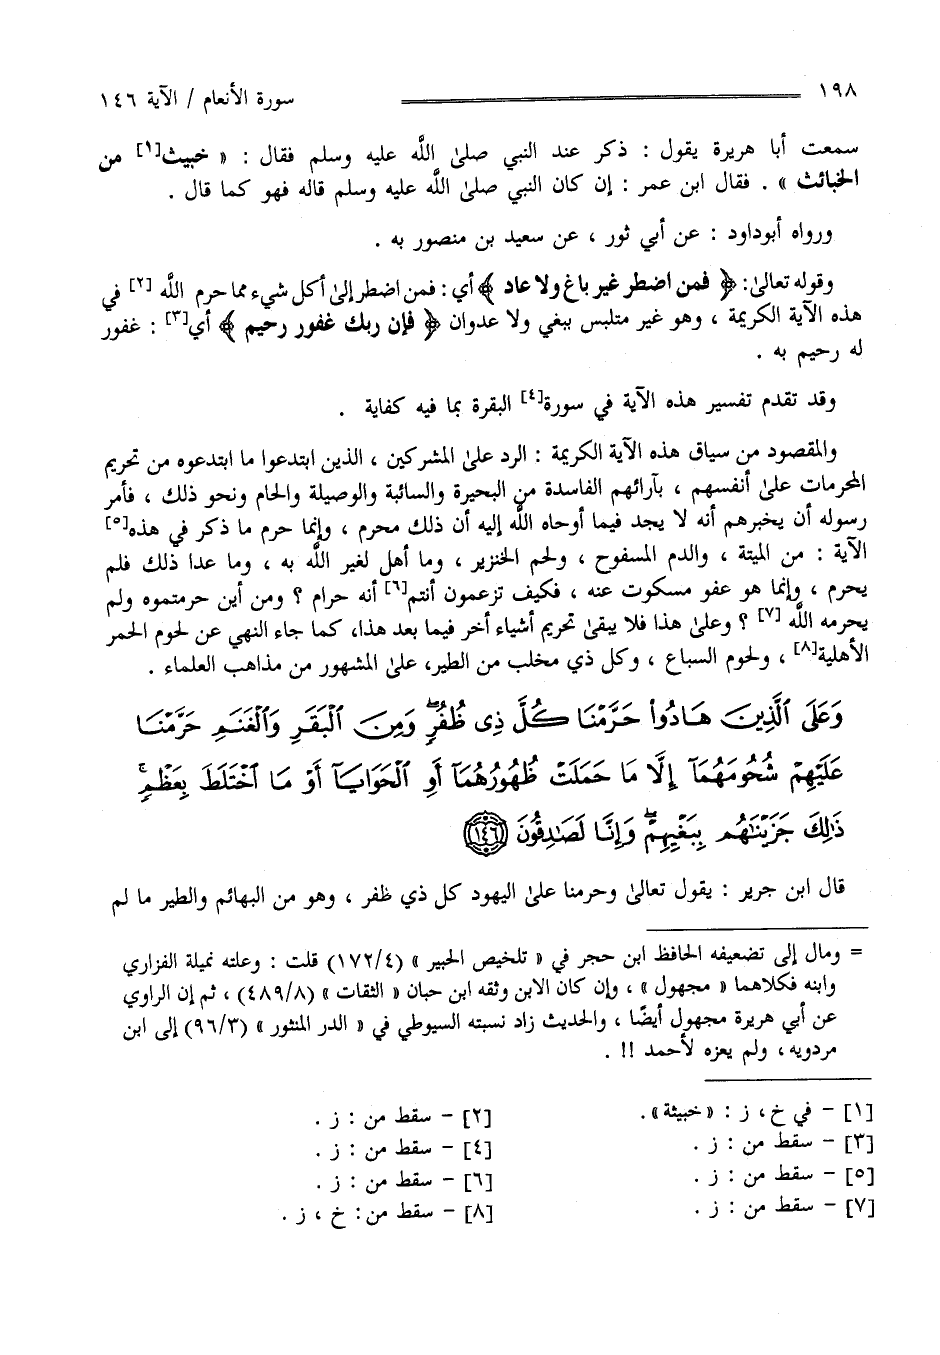 ١٩٨ سورة الأنعام / الآية ١٤٦
سمعت أبا هريرة يقول : ذكر عند النبي صلى اللَّه عليه وسلم فقال : « خبيث[١] من
الخبائث » . فقال ابن عمر : إن كان النبي صلى اللَّه عليه وسلم قاله فهو كما قال .
ورواه أبوداود : عن أبي ثور ، عن سعيد بن منصور به .
وقوله تعالىٰ: ﴿ فمن اضطر غير باغ ولا عاد ﴾ أي : فمن اضطر إلىٰ أكل شيء مما حرم اللَّه [٢] في
هذه الآية الكريمة ، وهو غير متلبس ببغي ولا عدوان ﴿ فإن ربك غفور رحيم ﴾ أي[٣] : غفور
له رحيم به .
وقد تقدم تفسير هذه الآية في سورة[٤] البقرة بما فيه كفاية .
والمقصود من سياق هذه الآية الكريمة : الرد علىٰ المشركين ، الذين ابتدعوا ما ابتدعوه من تحريم
المحرمات علىٰ أنفسهم ، بآرائهم الفاسدة من البحيرة والسائبة والوصيلة والحام ونحو ذلك ، فأمر
رسوله أن يخبرهم أنه لا يجد فيما أوحاه اللَّه إليه أن ذلك محرم ، وإنما حرم ما ذكر في هذه[٥]
الآية : من الميتة ، والدم المسفوح ، ولحم الخنزير ، وما أهل لغير اللَّه به ، وما عدا ذلك فلم
يحرم ، وإنما هو عفو مسكوت عنه ، فكيف تزعمون أنتم[٦] أنه حرام ؟ ومن أين حرمتموه ولم
يحرمه اللَّه [٧] ؟ وعلىٰ هذا فلا يبقىٰ تحريم أشياء أخر فيما بعد هذا، كما جاء النهي عن لحوم الحمر
الأهلية[٨] ، ولحوم السباع ، وكل ذي مخلب من الطير، علىٰ المشهور من مذاهب العلماء .
وَعَلَى ٱلَّذِينَ هَادُوا۟ حَرَّمْنَا كُلَّ ذِى ظُفُرٍۖ وَمِنَ ٱلْبَقَرِ وَٱلْغَنَمِ حَرَّمْنَا
عَلَيْهِمْ شُحُومَهُمَآ إِلَّا مَا حَمَلَتْ ظُهُورُهُمَآ أَوِ ٱلْحَوَايَآ أَوْ مَا ٱخْتَلَطَ بِعَظْمٍۚ
ذَٰلِكَ جَزَيْنَٰهُم بِبَغْيِهِمْۖ وَإِنَّا لَصَٰدِقُونَ ١٤٦
قال ابن جرير : يقول تعالىٰ وحرمنا علىٰ اليهود كل ذي ظفر ، وهو من البهائم والطير ما لم
= ومال إلى تضعيفه الحافظ ابن حجر في « تلخيص الحبير » (١٧٢/٤) قلت : وعلته نميلة الفزاري
وابنه فكلاهما « مجهول » ، وإن كان الابن وثقه ابن حبان « الثقات » (٤٨٩/٨) ، ثم إن الراوي
عن أبي هريرة مجهول أيضًا ، والحديث زاد نسبته السيوطي في « الدر المنثور » (٩٦/٣) إلى ابن
مردويه، ولم يعزه لأحمد !! .
[١] - في خ، ز : «خبيثة». [٢] - سقط من : ز .
[٣] - سقط من : ز . [٤] - سقط من : ز .
[٥] - سقط من : ز . [٦] - سقط من : ز .
[٧] - سقط من : ز . [٨] - سقط من: خ ، ز .